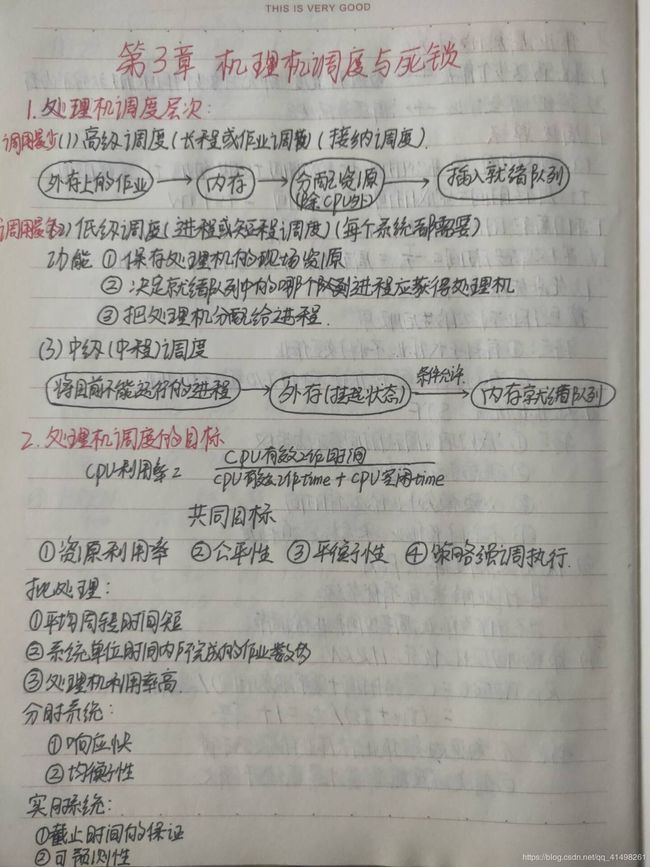 THIS IS VERY GOOD
第3章 机理机调度与死锁
1.处理机调度层次:
调用最少(1)高级调度(长程或作业调度)(接纳调度).
外存上的作业 → 内存 → 分配资源(除CPU外) → 插入就绪队列
调用最多(2)低级调度(进程或短程调度)(每个系统都需要)
功能 ①保存处理机的现场资源
②决定就绪队列中的哪个进程应获得处理机
③把处理机分配给进程.
(3)中级(中程)调度
将目前不能运行的进程 → 外存(挂起状态) 条件允许. → 内存就绪队列
2.处理机调度的目标
CPU利用率= CPU有效工作时间
CPU有效工作time + CPU空闲time
共同目标
①资源利用率 ②公平性 ③平衡性 ④策略强调执行.
批处理:
①平均周转时间短
②系统单位时间内所完成的作业数多
③处理机利用率高.
分时系统:
①响应快
②均衡性
实时系统:
①截止时间的保证
②可预测性
https://blog.csdn.net/qq_41498261